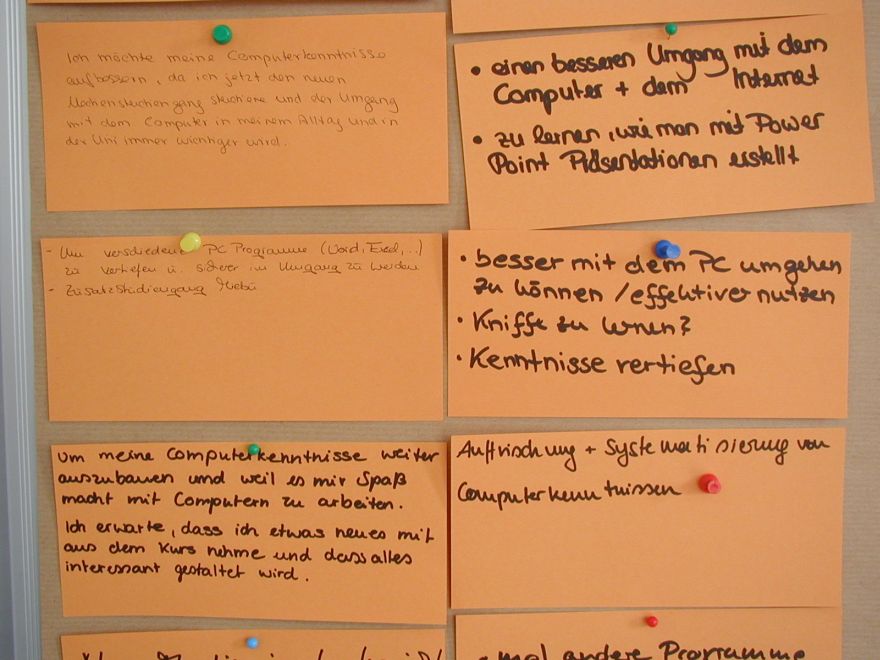 Ich möchte meine Computerkenntnisse
aufbessern, da ich jetzt den neuen
studiere und der Umgang
mit dem Computer in meinem Alltag und in
der Uni immer wichtiger wird.
• einen besseren Umgang mit dem
Computer + dem Internet
• zu lernen, wie man mit Power
Point Präsentationen erstellt
- Um verschiedene PC Programme (Word, Excel,...)
zu vertiefen u. sicherer im Umgang zu werden
- Zusatzstudiengang
• besser mit dem PC umgehen
zu können / effektiver nutzen
• Kniffe zu lernen?
• Kenntnisse vertiefen
Um meine Computerkenntnisse weiter
auszubauen und weil es mir Spaß
macht mit Computern zu arbeiten.
Ich erwarte, dass ich etwas neues mit
aus dem Kurs nehme und dass alles
interessant gestaltet wird.
Auffrischung + Systematisierung von
Computerkenntnissen
mal andere Programme